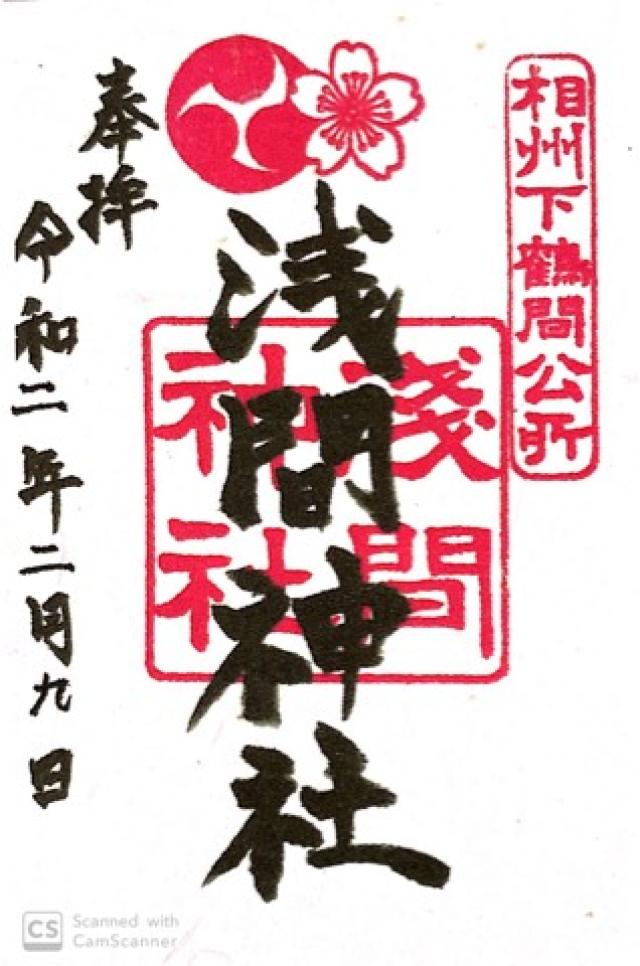 相州下鶴間公所
浅間神社
淺間
神社
奉拝
令和二年二月九日
CS Scanned with
CamScanner